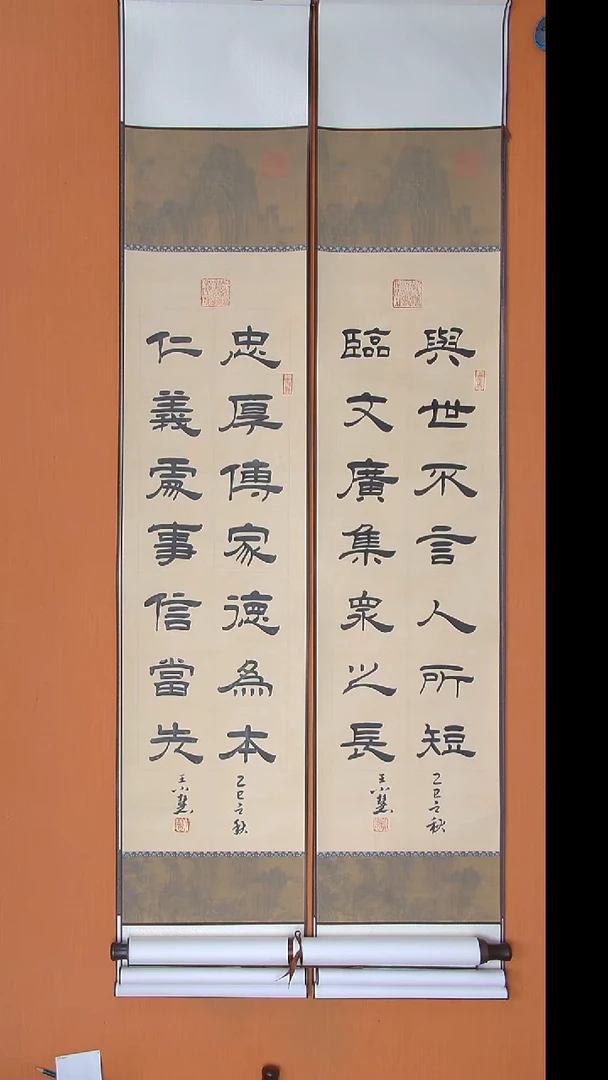 與世不言人所短
臨文廣集眾之長
乙巳之秋
王小慧
忠厚傳家德為本
仁義處事信當先
乙巳之秋
王小慧